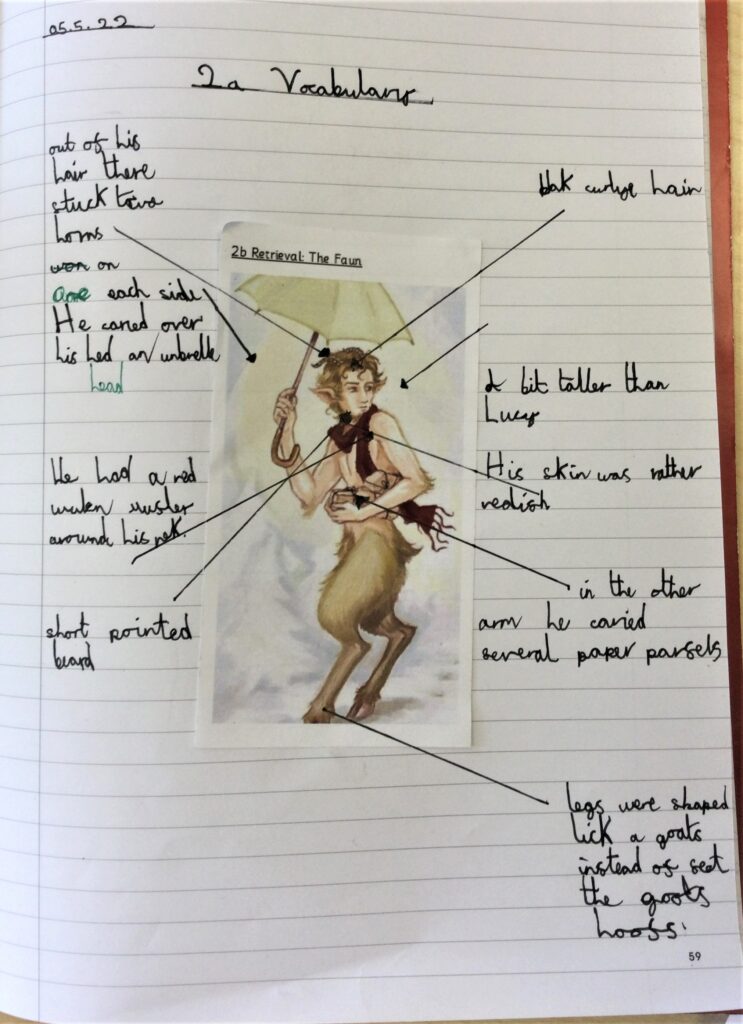 05.5.22
2a Vocabulary
out of his
hair there
stuck two
horns
on
each side
He caried over
his hed an umbrelle
head
He had a red
around his nek.
short pointed
beard
2b Retrieval: The Faun
blak curlye hair
A bit taller than
Lucy
His skin was rather
redish
in the other
arm he caried
several paper parsels
legs were shaped
lick a goats
instead of feet
the goots
hoofs.
59